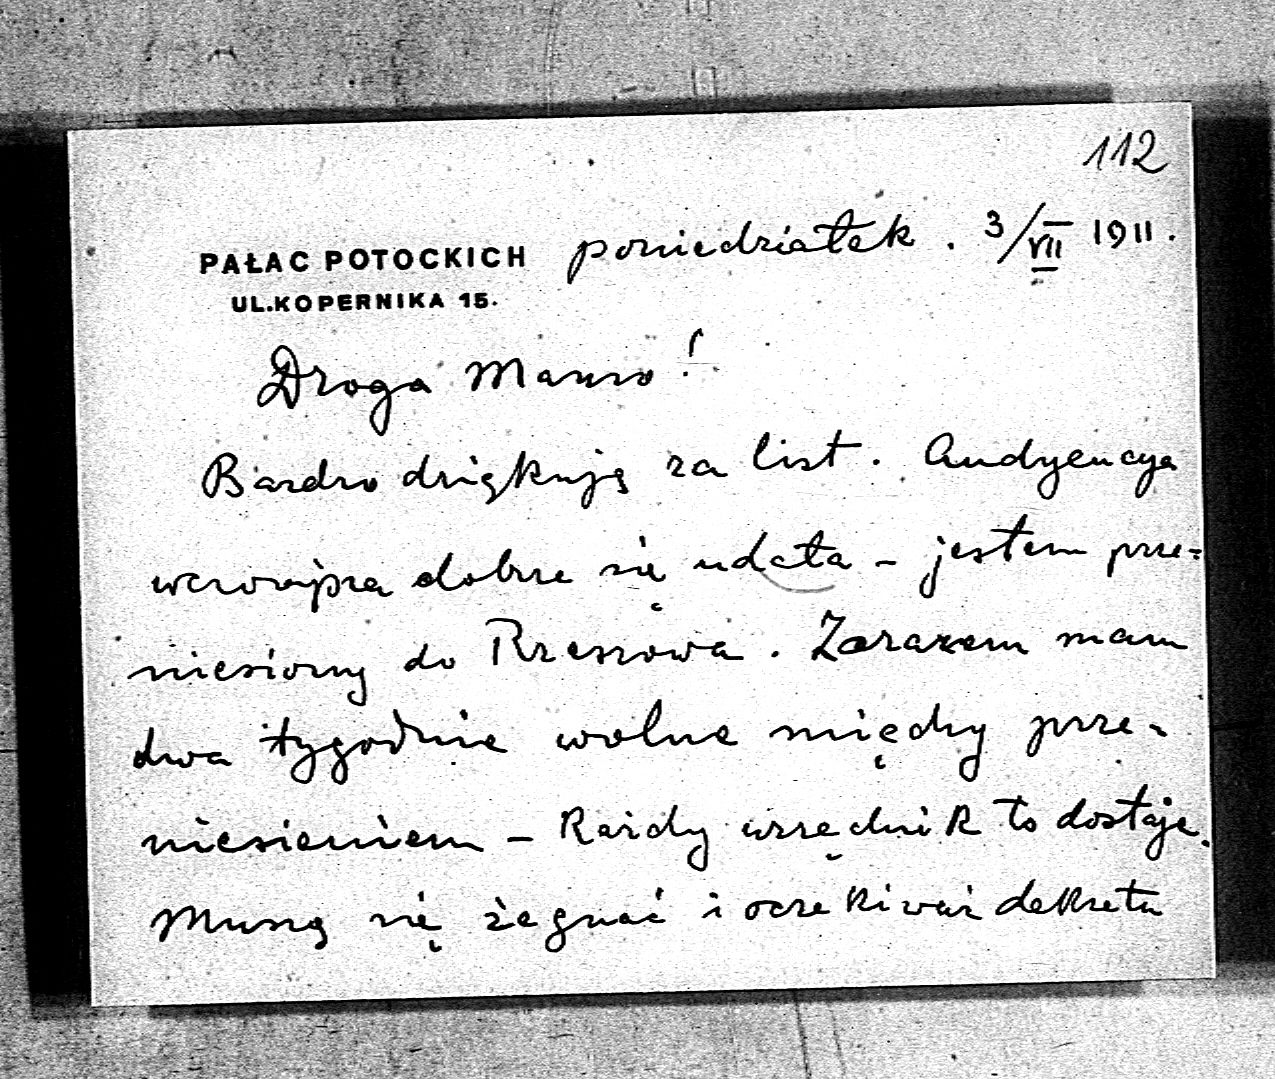 112
PAŁAC POTOCKICH poniedziałek. 3/VII 1911.
UL.KOPERNIKA 15.
Droga Maniu!
Bardzo dziękuję za list. Audyencya
wczorajsza dobrze się udała – jestem prze=
niesiony do Rzeszowa. Zarazem mam
dwa tygodnie wolne między prze-
niesieniem – Każdy urzędnik to dostaje.
Muszę się żegnać i oczekiwać dekretu